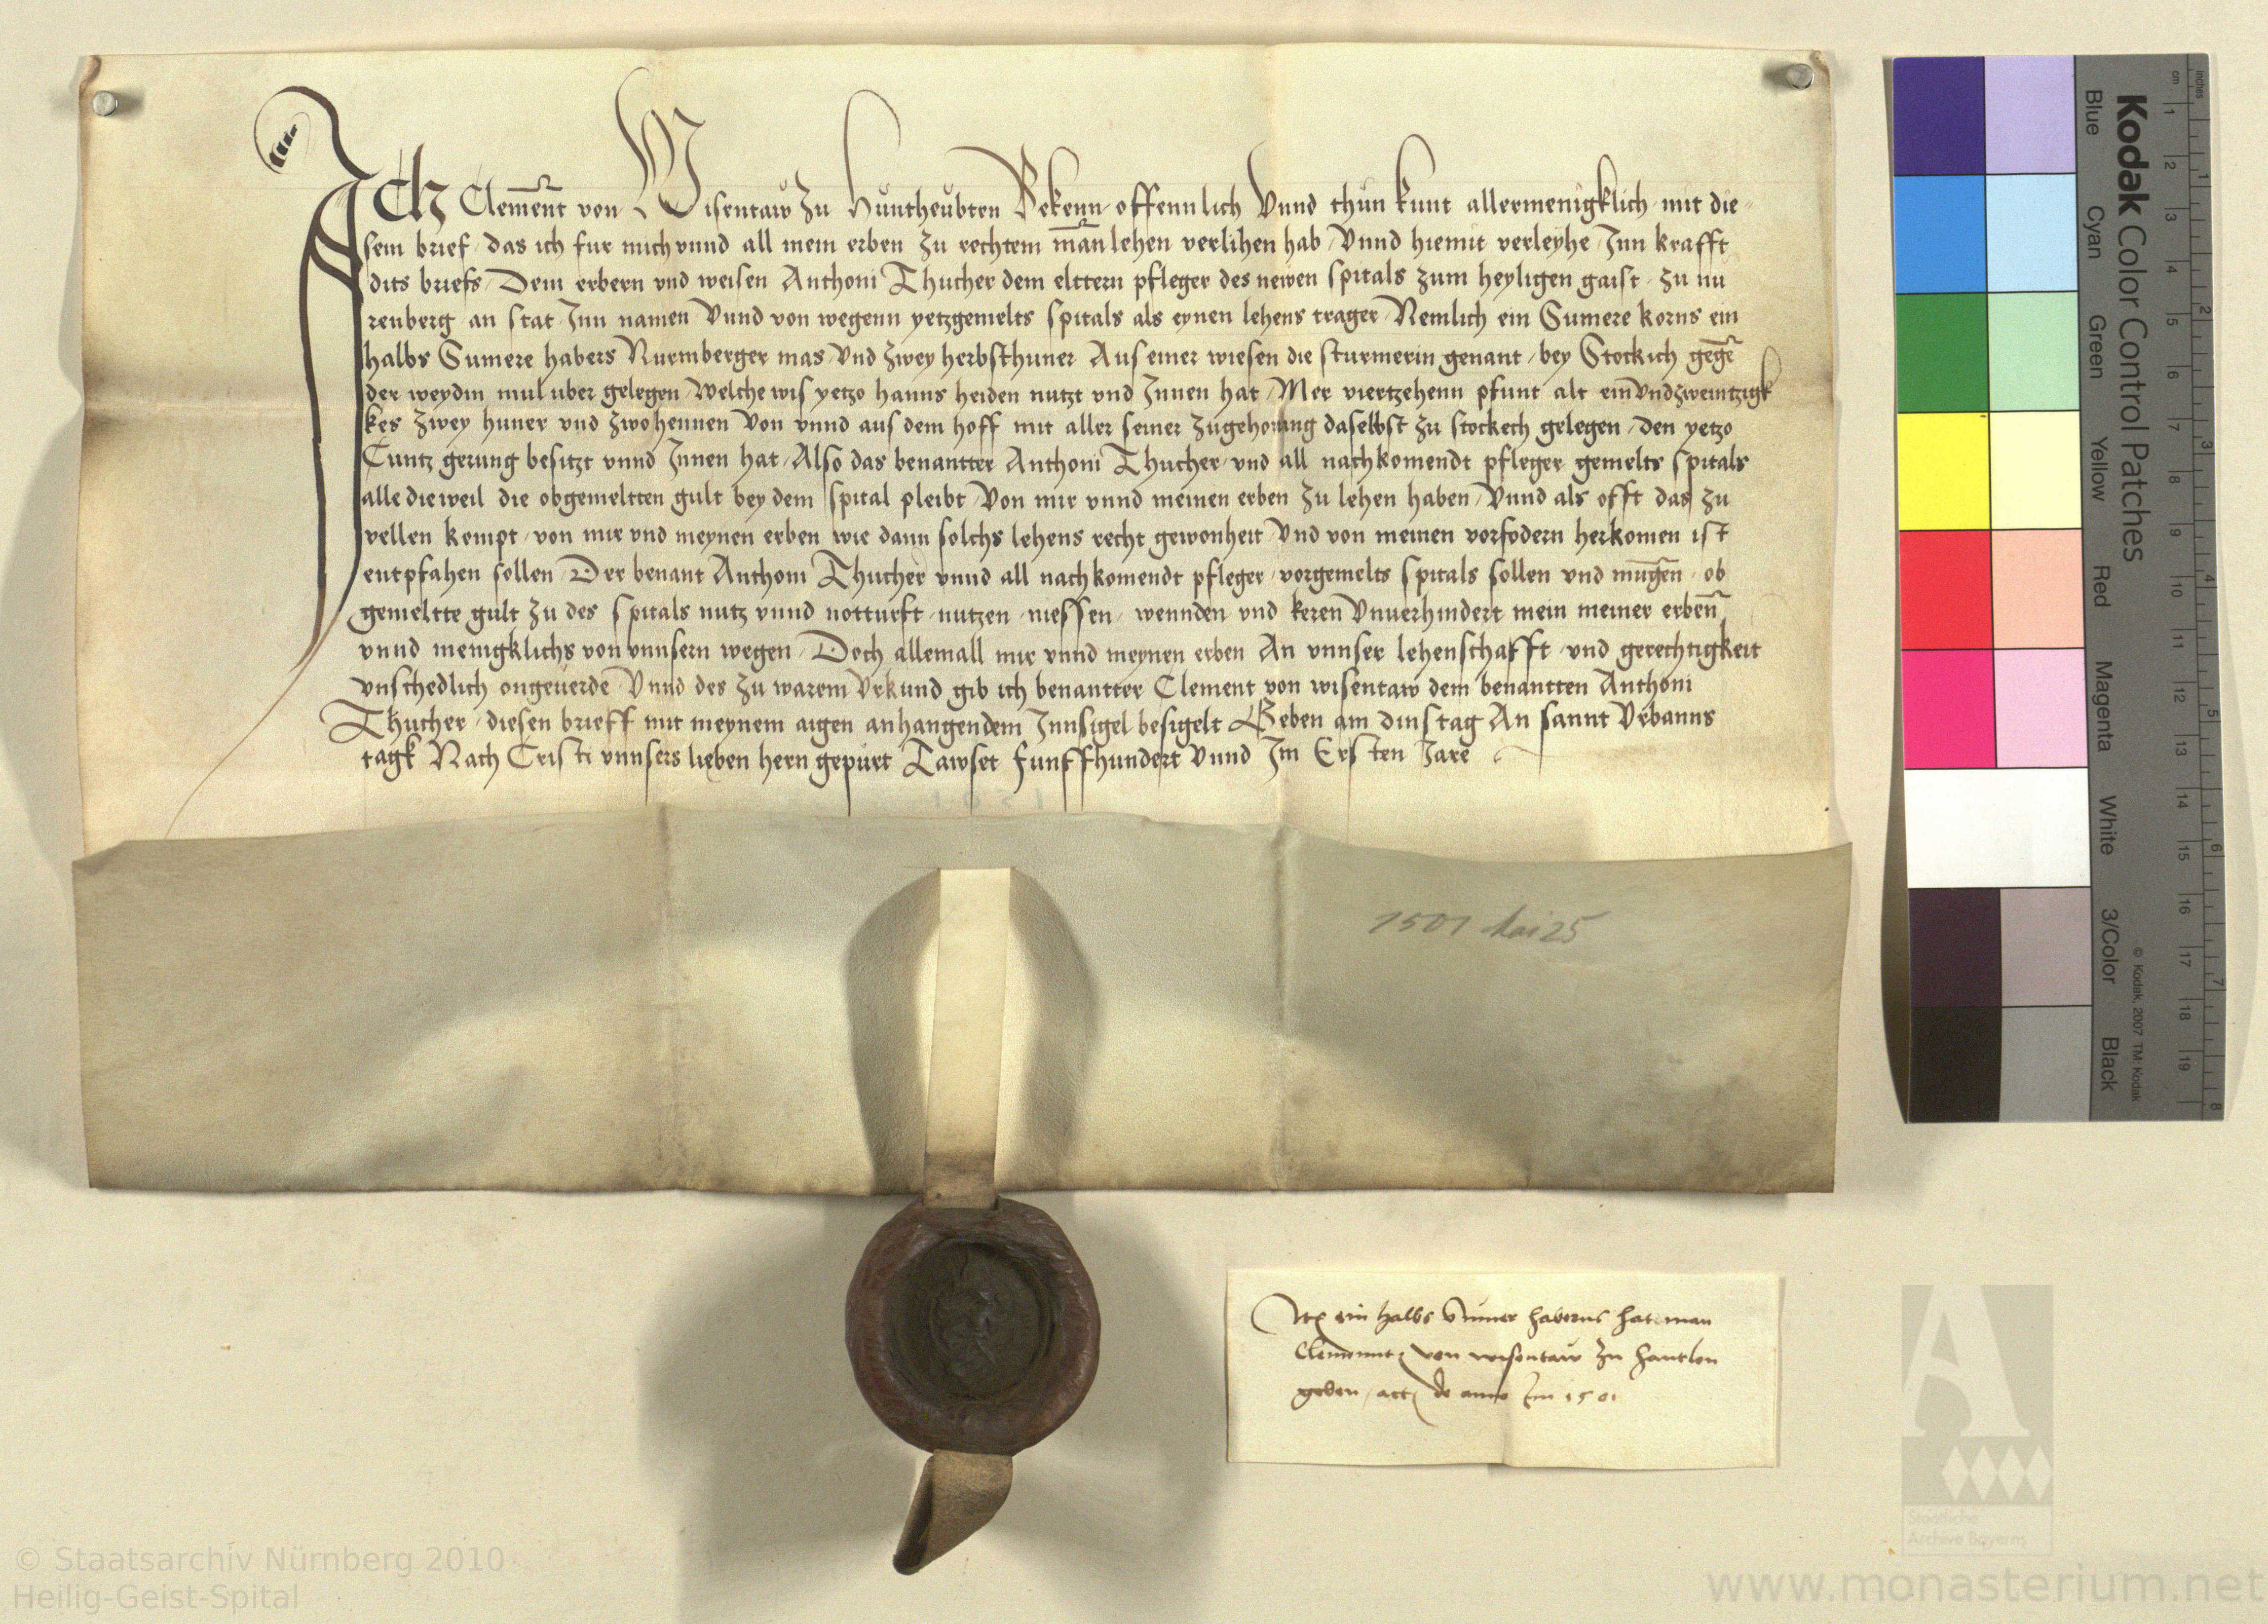 Ich Clement von Wisentaw zu Huntheubten Bekenn offennlich Vnnd thun kunt allermenigklich mit die-
sem brief das ich fur mich vnnd all mein erben zu rechtem manlehen verlihen hab Vnnd hiemit verleyhe Jnn krafft
dits briefs Dem erbern vnd weisen Anthoni Thucher dem elttern pfleger des newen spitals zum heyligen gaist zu nu
renberg an stat Jnn namen Vnnd von wegenn yetzgemelts spitals als eynen lehens trager Nemlich ein Sumere korns ein
halbs Sumere habers Nurmberger mas Vnd zwey herbsthuner Aus einer wiesen die sturmerin genant bey Stockich gege
der weydin mul uber gelegen Welche wis yetzo hanns heiden nutzt vnd Jnnen hat Mer viertzehenn pfunt alt einVndzweintzigk
kes zwey huner vnd zwo hennen Von vnnd aus dem hoff mit aller seiner zugehorung daselbst zu stockech gelegen den yetzo
Cuntz gerung besitzt vnnd Jnnen hat Also das benantter Anthoni Thucher vnd all nachkomendt pfleger gemelts spitals
alle dieweil die obgemeltten gult bey dem spital pleibt Von mir vnnd meinen erben zu lehen haben Vnnd als offt das zu
vellen kompt von mir vnd meynen erben wie dann solchs lehens recht gewonheit Vnd von meinen vorfodern herkomen ist
entpfahen sollen Der benant Anthoni Thucher vnnd all nachkomendt pfleger vorgemelts spitals sollen vnd mugen ob
gemeltte gult zu des spitals nutz vnnd notturft nutzen niessen wennden vnd keren Vnuerhindert mein meiner erben
vnnd menigklichs von vnnsern wegen Doch allemall mir vnnd meynen erben An vnnser lehenschafft vnd gerechtigkeit
vnschedlich ongeuerde Vnnd des zu warem Vrkund gib ich benantter Clement von wisentaw dem benantten Anthoni
Thucher diesen brieff mit meynem aigen anhangendem Jnnsigel besigelt Geben am dinstag An sannt Vrbanns
tagk Nach Cristi vnnsers lieben hern gepurt Tawset funffhundert Vnnd Jm Ersten Jare
1501 Mai 25
ein halbs Sumer haberns hat man
Clement von wisentaw zu hantlon
geben act de anno im 1501
Kodak Color Control Patches
Blue Cyan Green Yellow Red Magenta White 3/Color Black
© Kodak, 2007 TM: Kodak
inches 1 2 3 4 5 6 7 8
cm 1 2 3 4 5 6 7 8 9 10 11 12 13 14 15 16 17 18 19
Staatliche
Archive Bayerns
© Staatsarchiv Nürnberg 2010
Heilig-Geist-Spital
www.monasterium.net